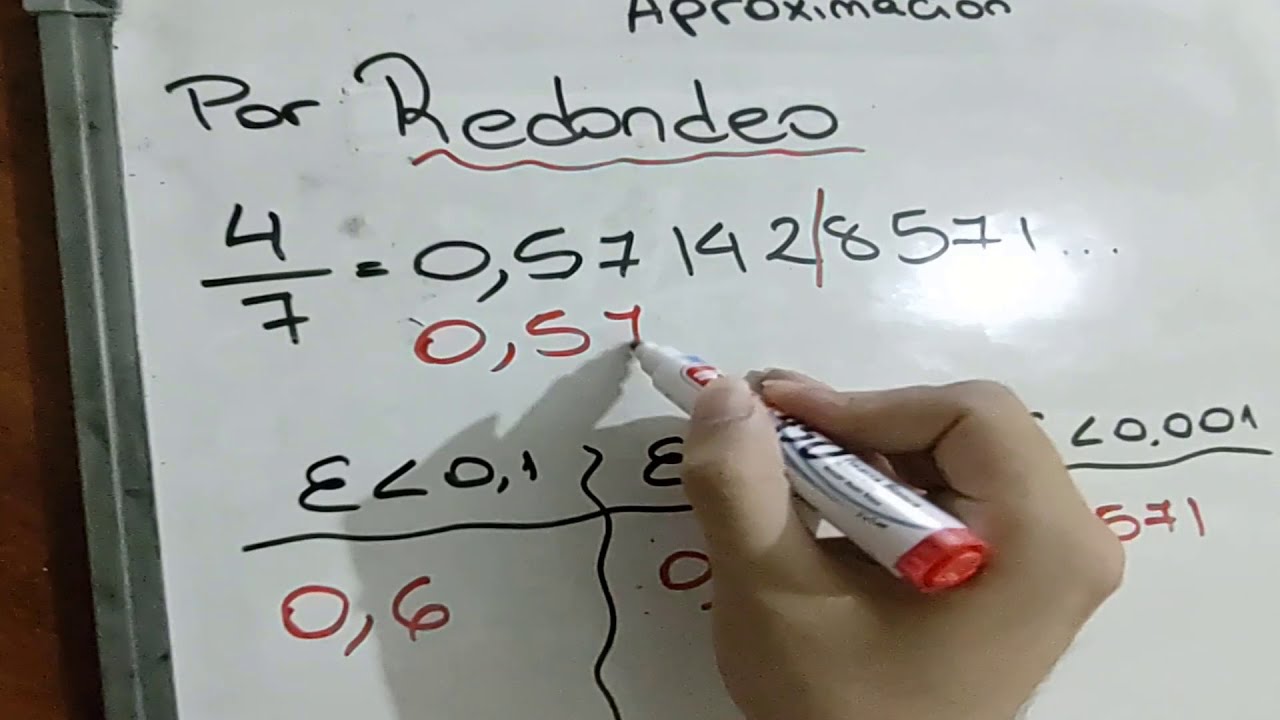 Aproximación
Por Redondeo
4/7 = 0,57142|8571...
0,57
ε<0,1 ε <0,001
0,6 0, 571